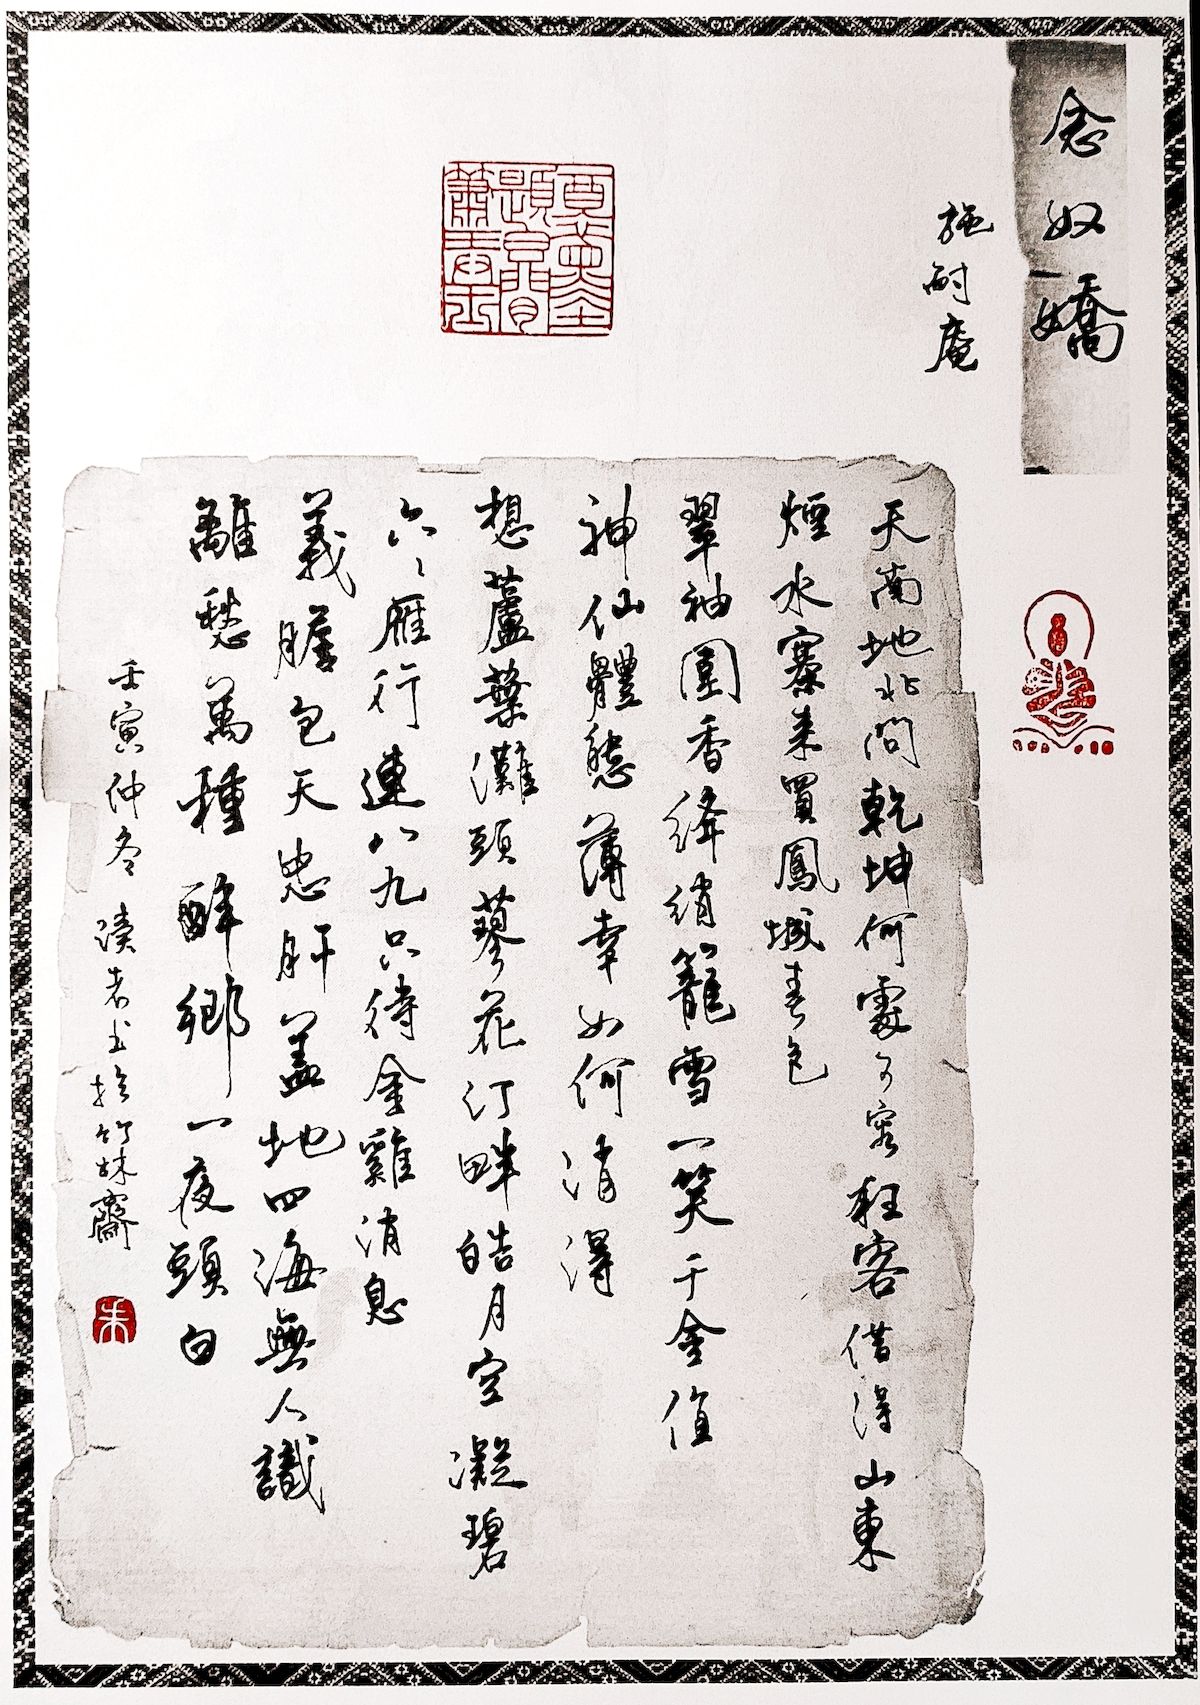 念奴嬌
施耐庵
天南地北問乾坤何處可容狂客借得山東
煙水寨來買鳳城春色
翠袖圍香絳綃籠雪一笑千金值
神仙體態薄幸如何消得
想蘆葉灘頭蓼花汀畔皓月空凝碧
六六雁行連八九只待金雞消息
義膽包天忠肝蓋地四海無人識
離愁萬種醉鄉一夜頭白
壬寅仲冬 讀者書於竹林齋
朱